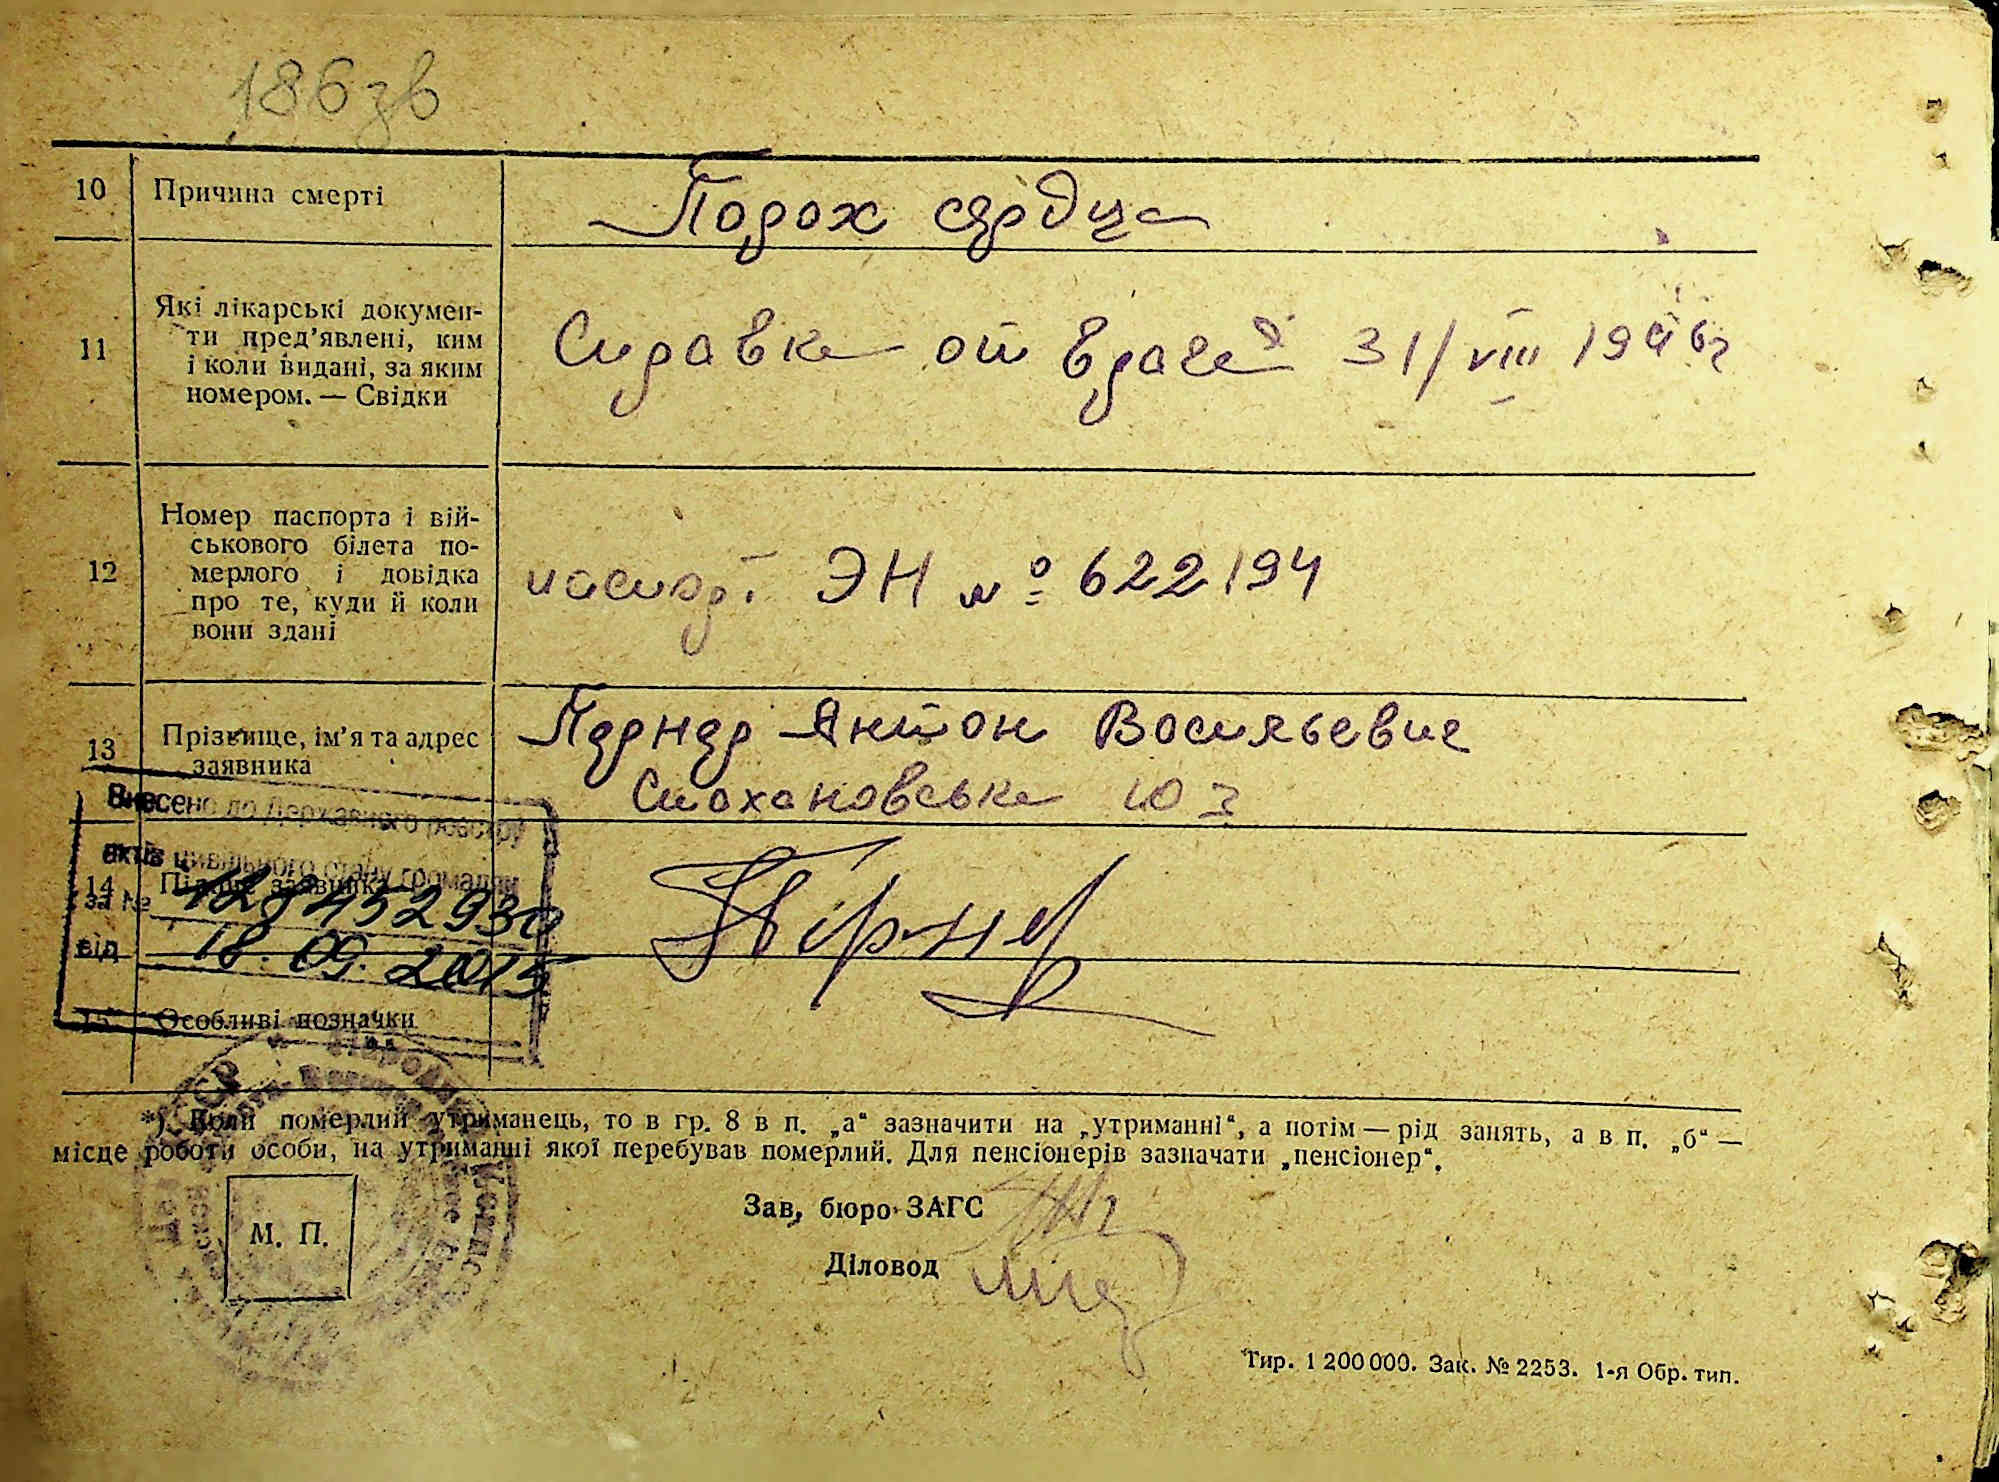 186 зв
10 Причина смерті Порох сердца
11 Які лікарські докумен-
ти пред'явлені, ким
і коли видані, за яким
номером. — Свідки
Справка от врача 31/VIII 1946г
12 Номер паспорта і вій-
ськового білета по-
мерлого і довідка
про те, куди й коли
вони здані
паспорт ЭН № 622194
13 Прізвище, ім'я та адрес
заявника
Антон Васильевич
Стахановська 10
Внесено до Державного реєстру
актів цивільного стану громадян
14 Підпис заявника
за № 128452930
від 18.09.2015
15 Особливі позначки
*) Коли померлий утриманець, то в гр. 8 в п. „а“ зазначити на „утриманні“, а потім — рід занять, а в п. „б“ —
місце роботи особи, на утриманні якої перебував померлий. Для пенсіонерів зазначати „пенсіонер“.
М. П.
Зав, бюро ЗАГС
Діловод
Тир. 1 200 000. Зак. № 2253. 1-я Обр. тип.